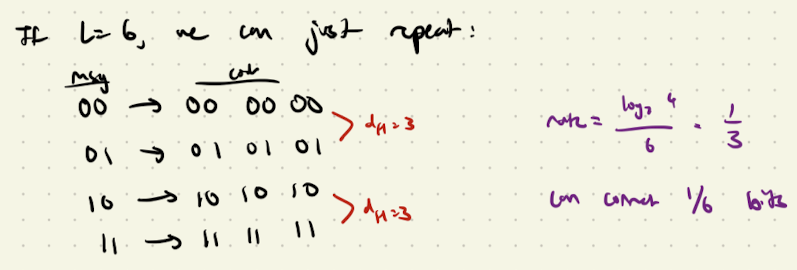 If L=6, we can just repeat:
msg code
00 → 00 00 00
01 → 01 01 01
> dH=3
10 → 10 10 10
11 → 11 11 11
> dH=3
rate = log₂ 4 / 6 = 1/3
can correct 1/6 bits